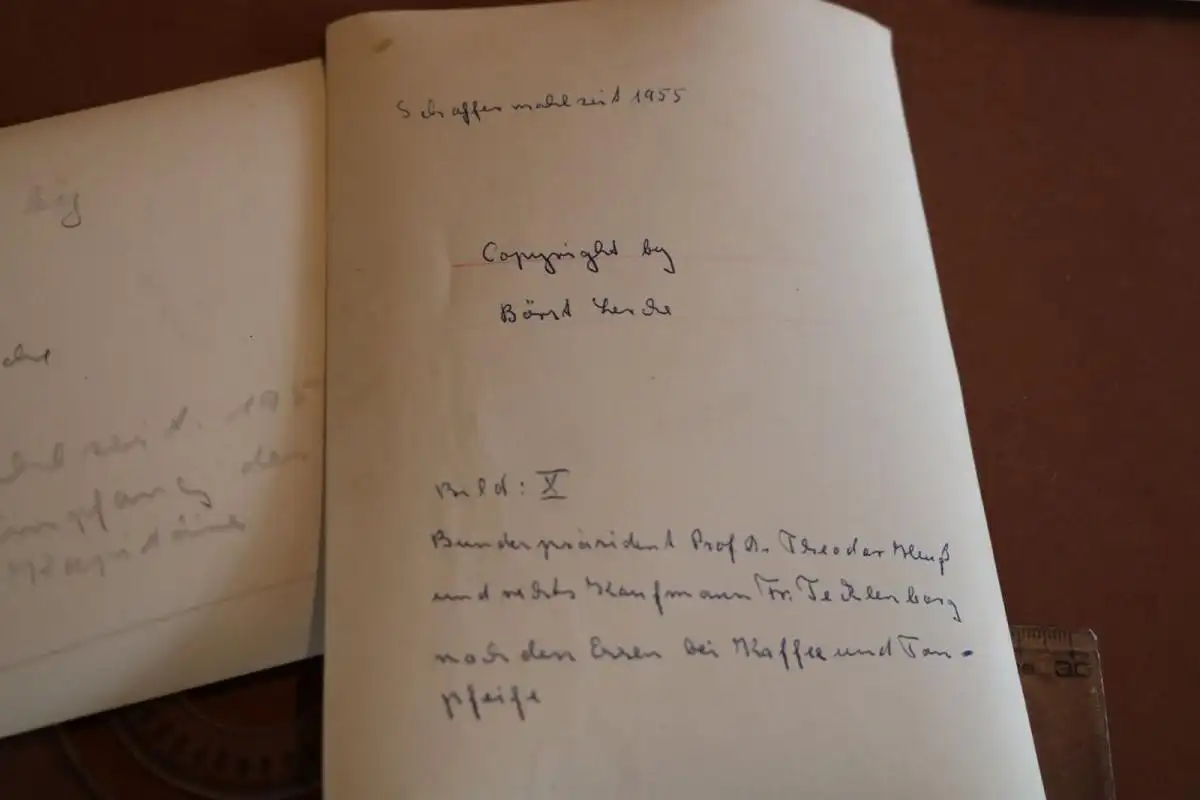 Schaffermahlzeit 1955
Copyright by
Börst
Bild: X
Bundespräsident Prof Dr. Theodor Heuß
und rechts Kaufmann Fr. Tecklenborg
nach dem Essen bei Kaffee und Ton-
pfeife
by
zeit. 195
Empfang der
Kapitäne